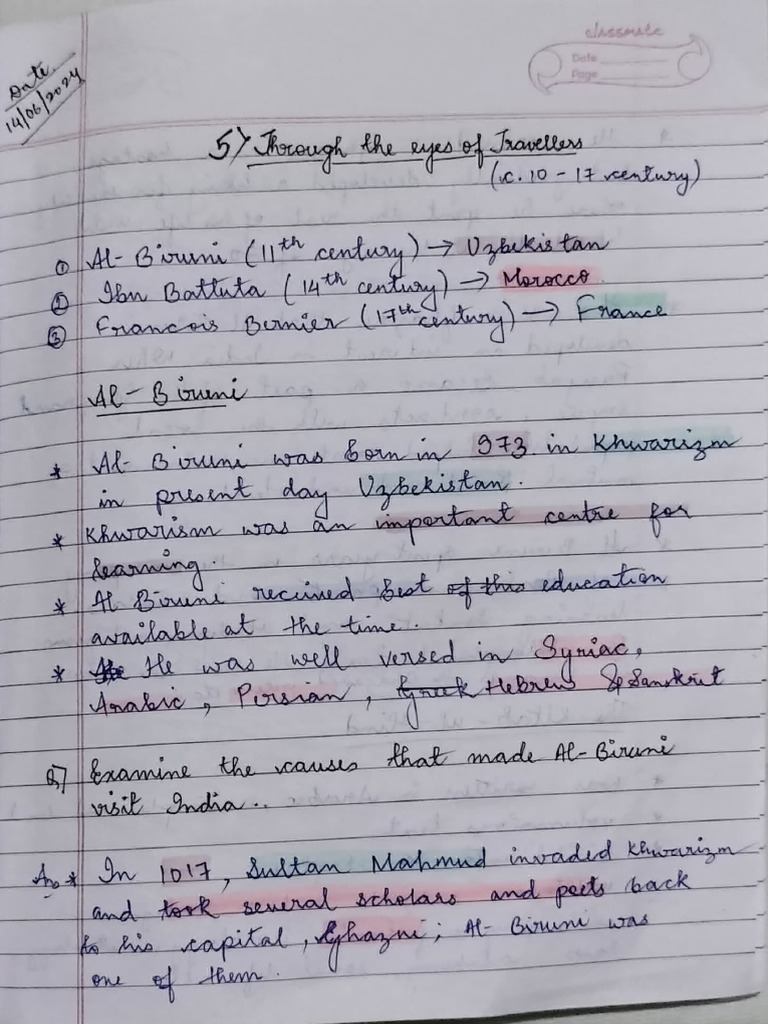 classmate
Date
Page
Date
14/06/2024
5) Through the eyes of Travellers
(c. 10 - 17 century)
① Al-Biruni (11th century) → Uzbekistan
② Ibn Battuta (14th century) → Morocco
③ Francois Bernier (17th century) → France
Al-Biruni
* Al-Biruni was born in 973 in Khwarizm
in present day Uzbekistan.
* Khwarism was an important centre for
learning.
* Al Biruni recieved best of this education
available at the time.
* He was well versed in Syriac,
Arabic, Persian, Greek Hebrew & Sanskrit
Q) Examine the causes that made Al-Biruni
visit India..
Ans * In 1017, Sultan Mahmud invaded Khwarizm
and took several scholars and poets back
to his capital, Ghazni; Al-Biruni was
one of them.